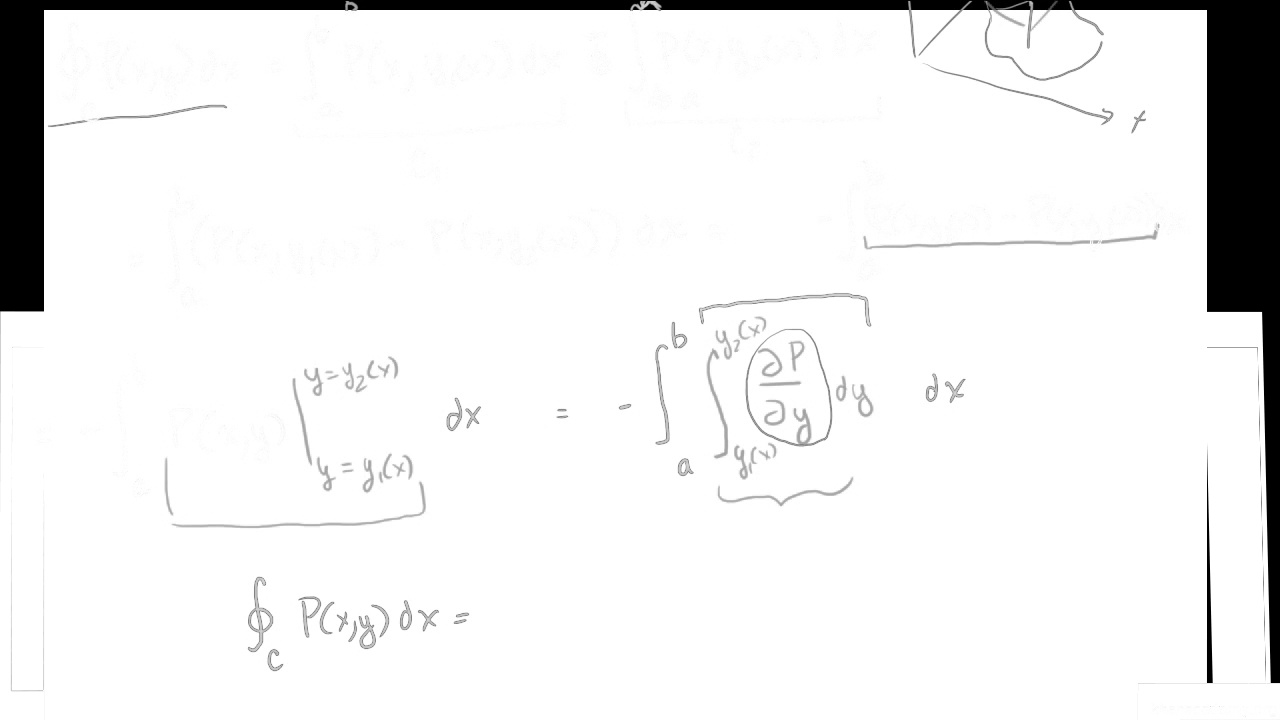 ∮_C P(x,y) dx = ∫_a^b P(x, y₁(x)) dx ∫ P(x,y₂(x)) dx
x
= ∫_a^b (P(x,y₁(x)) - P(x,y₂(x))) dx = -∫_a^b
= -∫_a^b P(x,y) |_{y=y₁(x)}^{y=y₂(x)} dx = -∫_a^b ∫_{y₁(x)}^{y₂(x)} ∂P/∂y dy dx
∮_C P(x,y) dx =